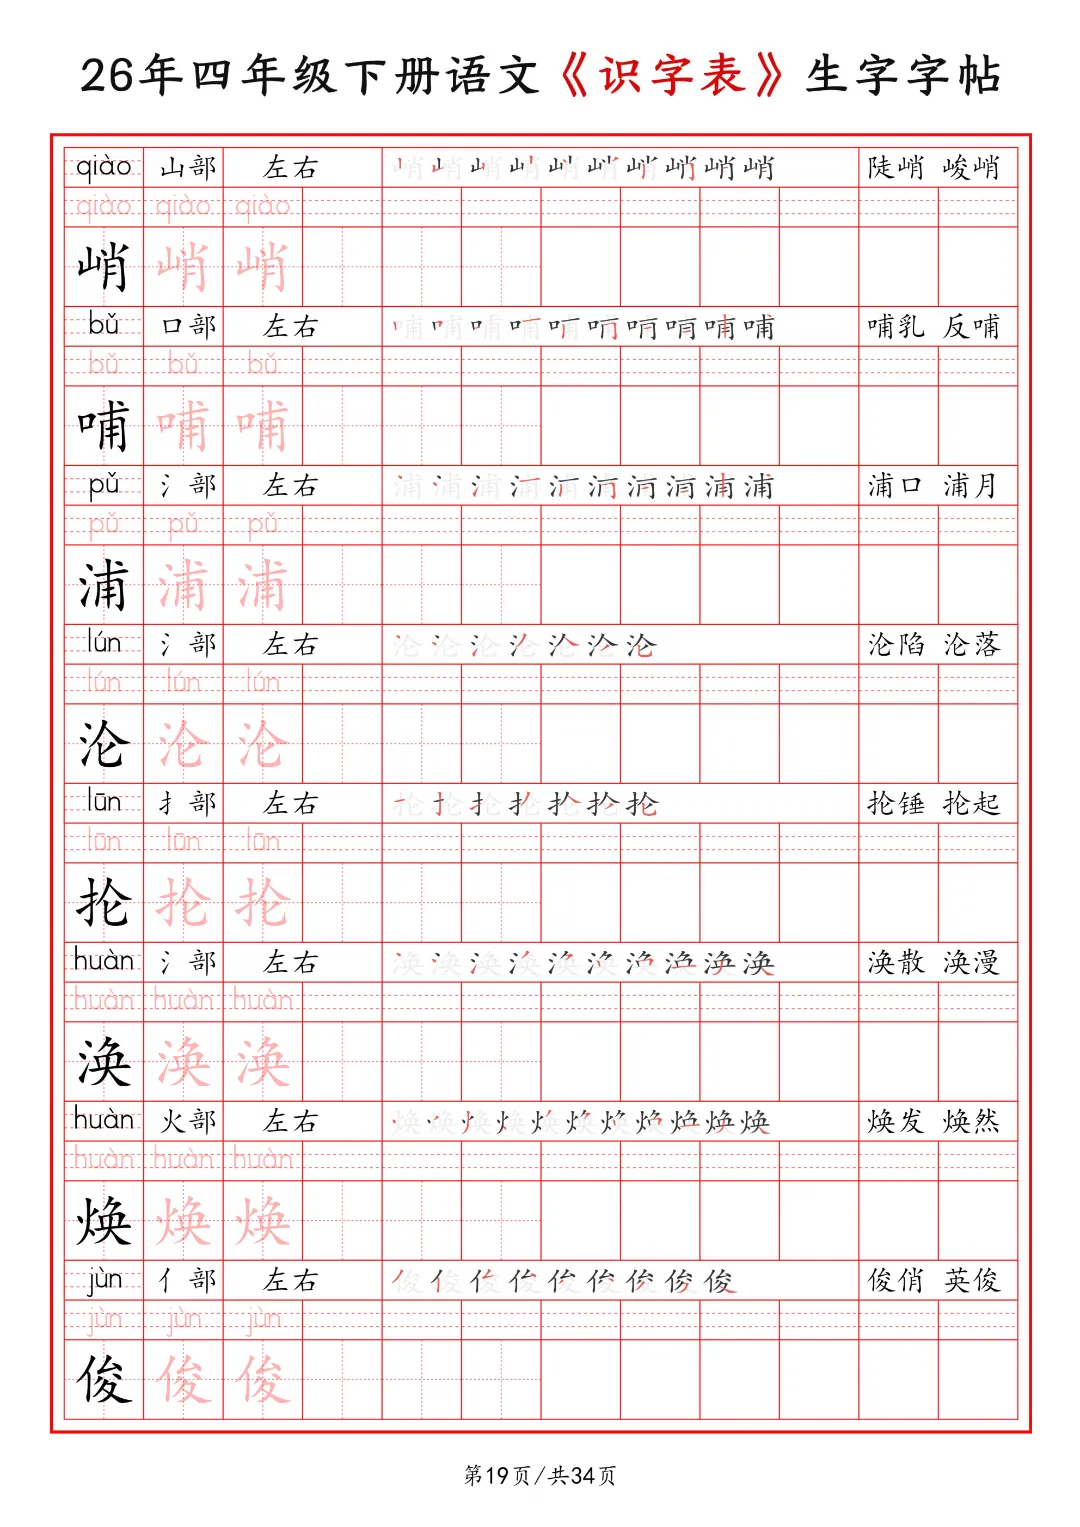 26年四年级下册语文《识字表》生字字帖
qiào 山部 左右 峭峭峭峭峭峭峭峭峭峭 陡峭 峻峭
qiào qiào qiào
峭 峭 峭
bǔ 口部 左右 哺哺哺哺哺哺哺哺哺哺 哺乳 反哺
bǔ bǔ bǔ
哺 哺 哺
pǔ 氵部 左右 浦浦浦浦浦浦浦浦浦浦 浦口 浦月
pǔ pǔ pǔ
浦 浦 浦
lún 氵部 左右 沦沦沦沦沦沦沦 沦陷 沦落
lún lún lún
沦 沦 沦
lūn 扌部 左右 抡抡抡抡抡抡抡 抡锤 抡起
lūn lūn lūn
抡 抡 抡
huàn 氵部 左右 涣涣涣涣涣涣涣涣涣涣 涣散 涣漫
huàn huàn huàn
涣 涣 涣
huàn 火部 左右 焕焕焕焕焕焕焕焕焕焕焕 焕发 焕然
huàn huàn huàn
焕 焕 焕
jùn 亻部 左右 俊俊俊俊俊俊俊俊俊 俊俏 英俊
jùn jùn jùn
俊 俊 俊
第19页/共34页